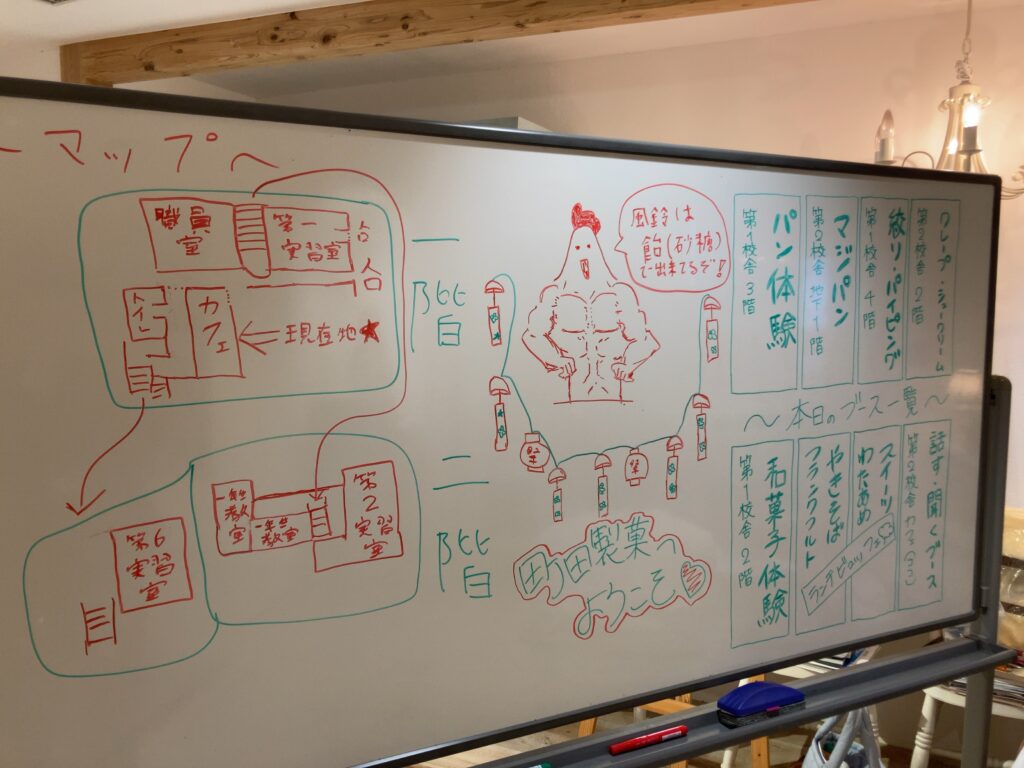 ～マップ～
職員室
第一実習室
トイレ
カフェ
現在地★
一階
第6実習室
一年生教室
第2実習室
二階
風鈴は
飴(砂糖)
で出来てるぞ!
祭
町田製菓へ
ようこそ
パン体験
第1校舎3階
マジパン
第2校舎 地下1階
絞り・パイピング
第1校舎4階
クレープ・シュークリーム
第2校舎2階
～本日のブース一覧～
和菓子体験
第1校舎2階
やきそば
フランクフルト
スイーツ
わたあめ
話す・聞くブース
第2校舎カフェ(ココ)